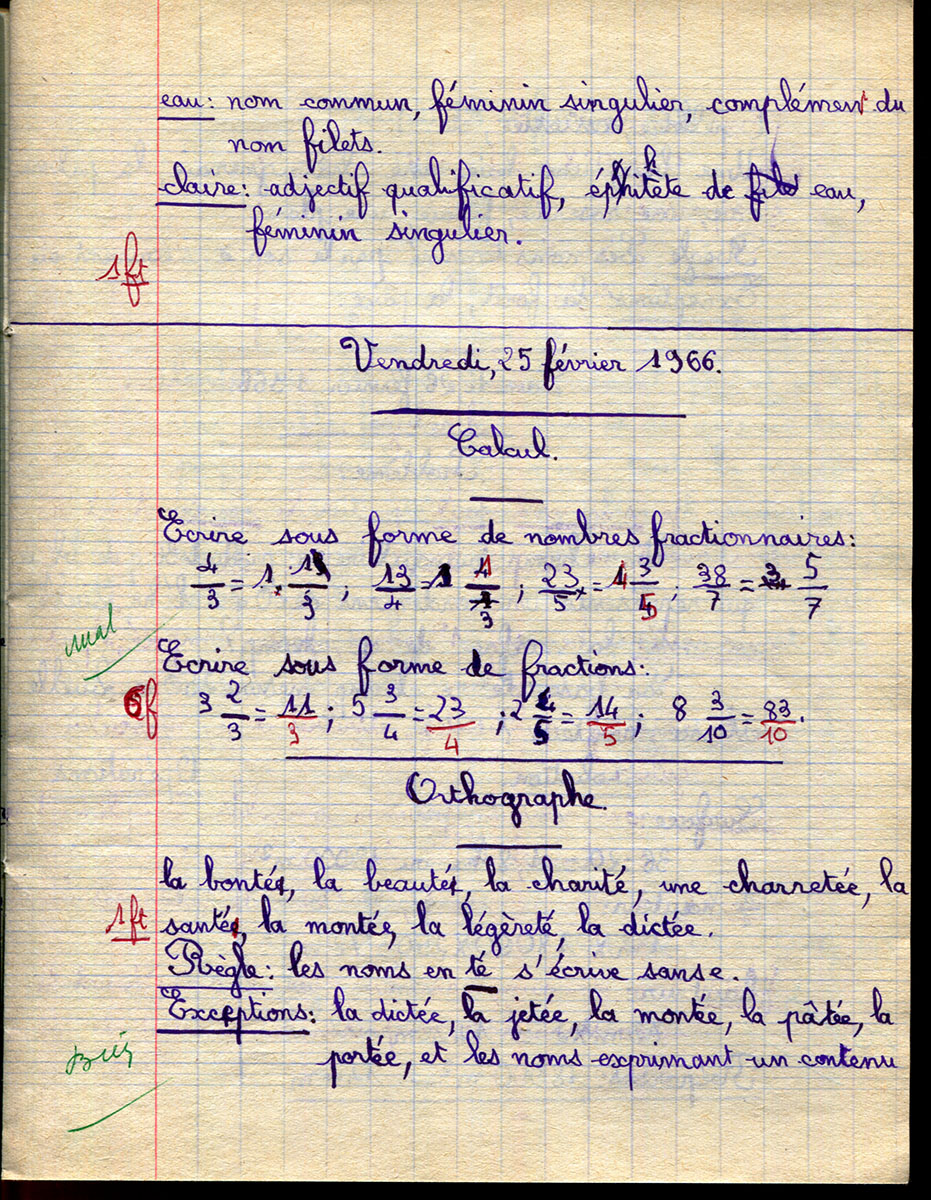 eau: nom commun, féminin singulier, complément du
nom filets.
claire: adjectif qualificatif, éphitète de eau,
féminin singulier.
1ft
Vendredi, 25 février 1966.
Calcul.
Ecrire sous forme de nombres fractionnaires:
4/3 = 1 1/3 ; 13/4 = 1/3 ; 23/5 = 4 3/5 ; 38/7 = 5/7
mal
Ecrire sous forme de fractions:
f 3 2/3 = 11/3 ; 5 3/4 = 23/4 ; 2 4/5 = 14/5 ; 8 3/10 = 83/10.
Orthographe.
la bonté, la beauté, la charité, une charretée, la
1ft santé, la montée, la légèreté, la dictée.
Règle: les noms en té s'écrive sans e.
Exceptions: la dictée, la jetée, la montée, la pâtée, la
portée, et les noms exprimant un contenu